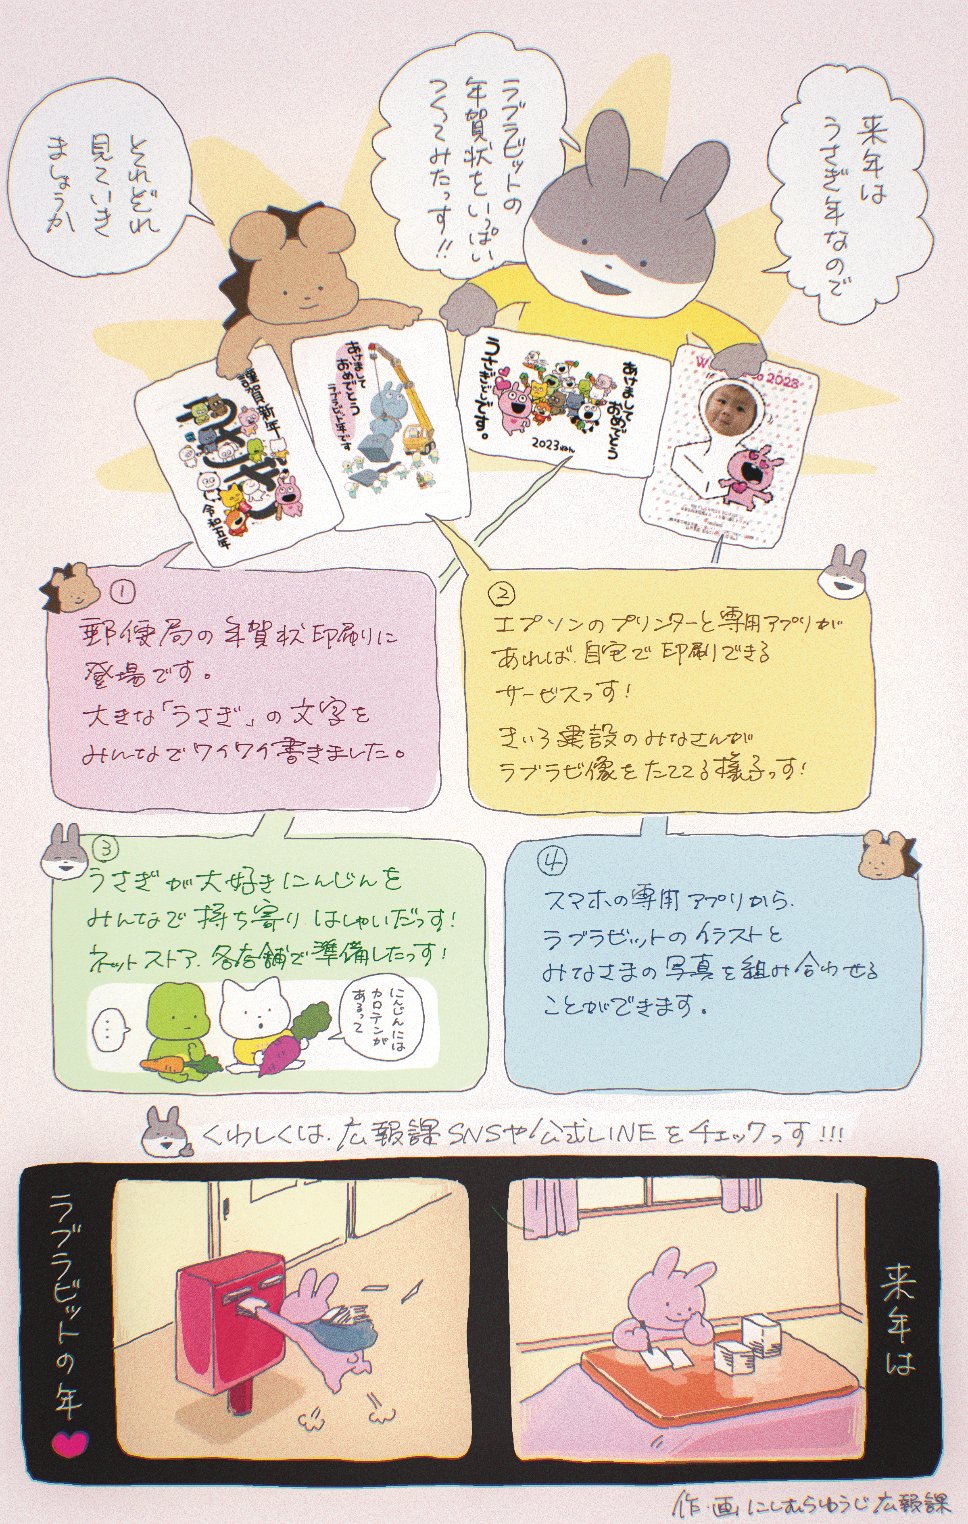 来年は
うさぎ年なので
ラブラビットの
年賀状をいっぱい
つくってみたっす!!
それぞれ
見ていき
ましょうか
謹賀新年
うさぎ
令和五年
あけまして
おめでとう
ラブラビ年です
うさぎどしです。
あけまして
おめでとう
2023ねん
2023
①
郵便局の年賀状印刷に
登場です。
大きな「うさぎ」の文字を
みんなでワイワイ書きました。
②
エプソンのプリンターと専用アプリが
あれば、自宅で印刷できる
サービスっす!
きいろ建設のみなさんが
ラブラビ像をたててる様子っす!
③
うさぎが大好きにんじんを
みんなで持ち寄りはしゃいだっす!
ネットストア、各店舗で準備したっす!
・・・
にんじんには
カロテンが
あるって
④
スマホの専用アプリから、
ラブラビットのイラストと
みなさまの写真を組み合わせる
ことができます。
くわしくは、広報課SNSや公式LINEをチェックっす!!!
来年は
ラブラビットの年
作・画 にしむらゆうじ広報課